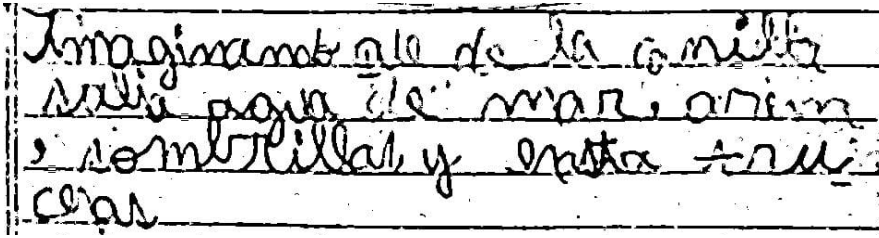 Imaginando que de la canilla
salia agua de mar, aren
, sombrillas y hasta tru
chas